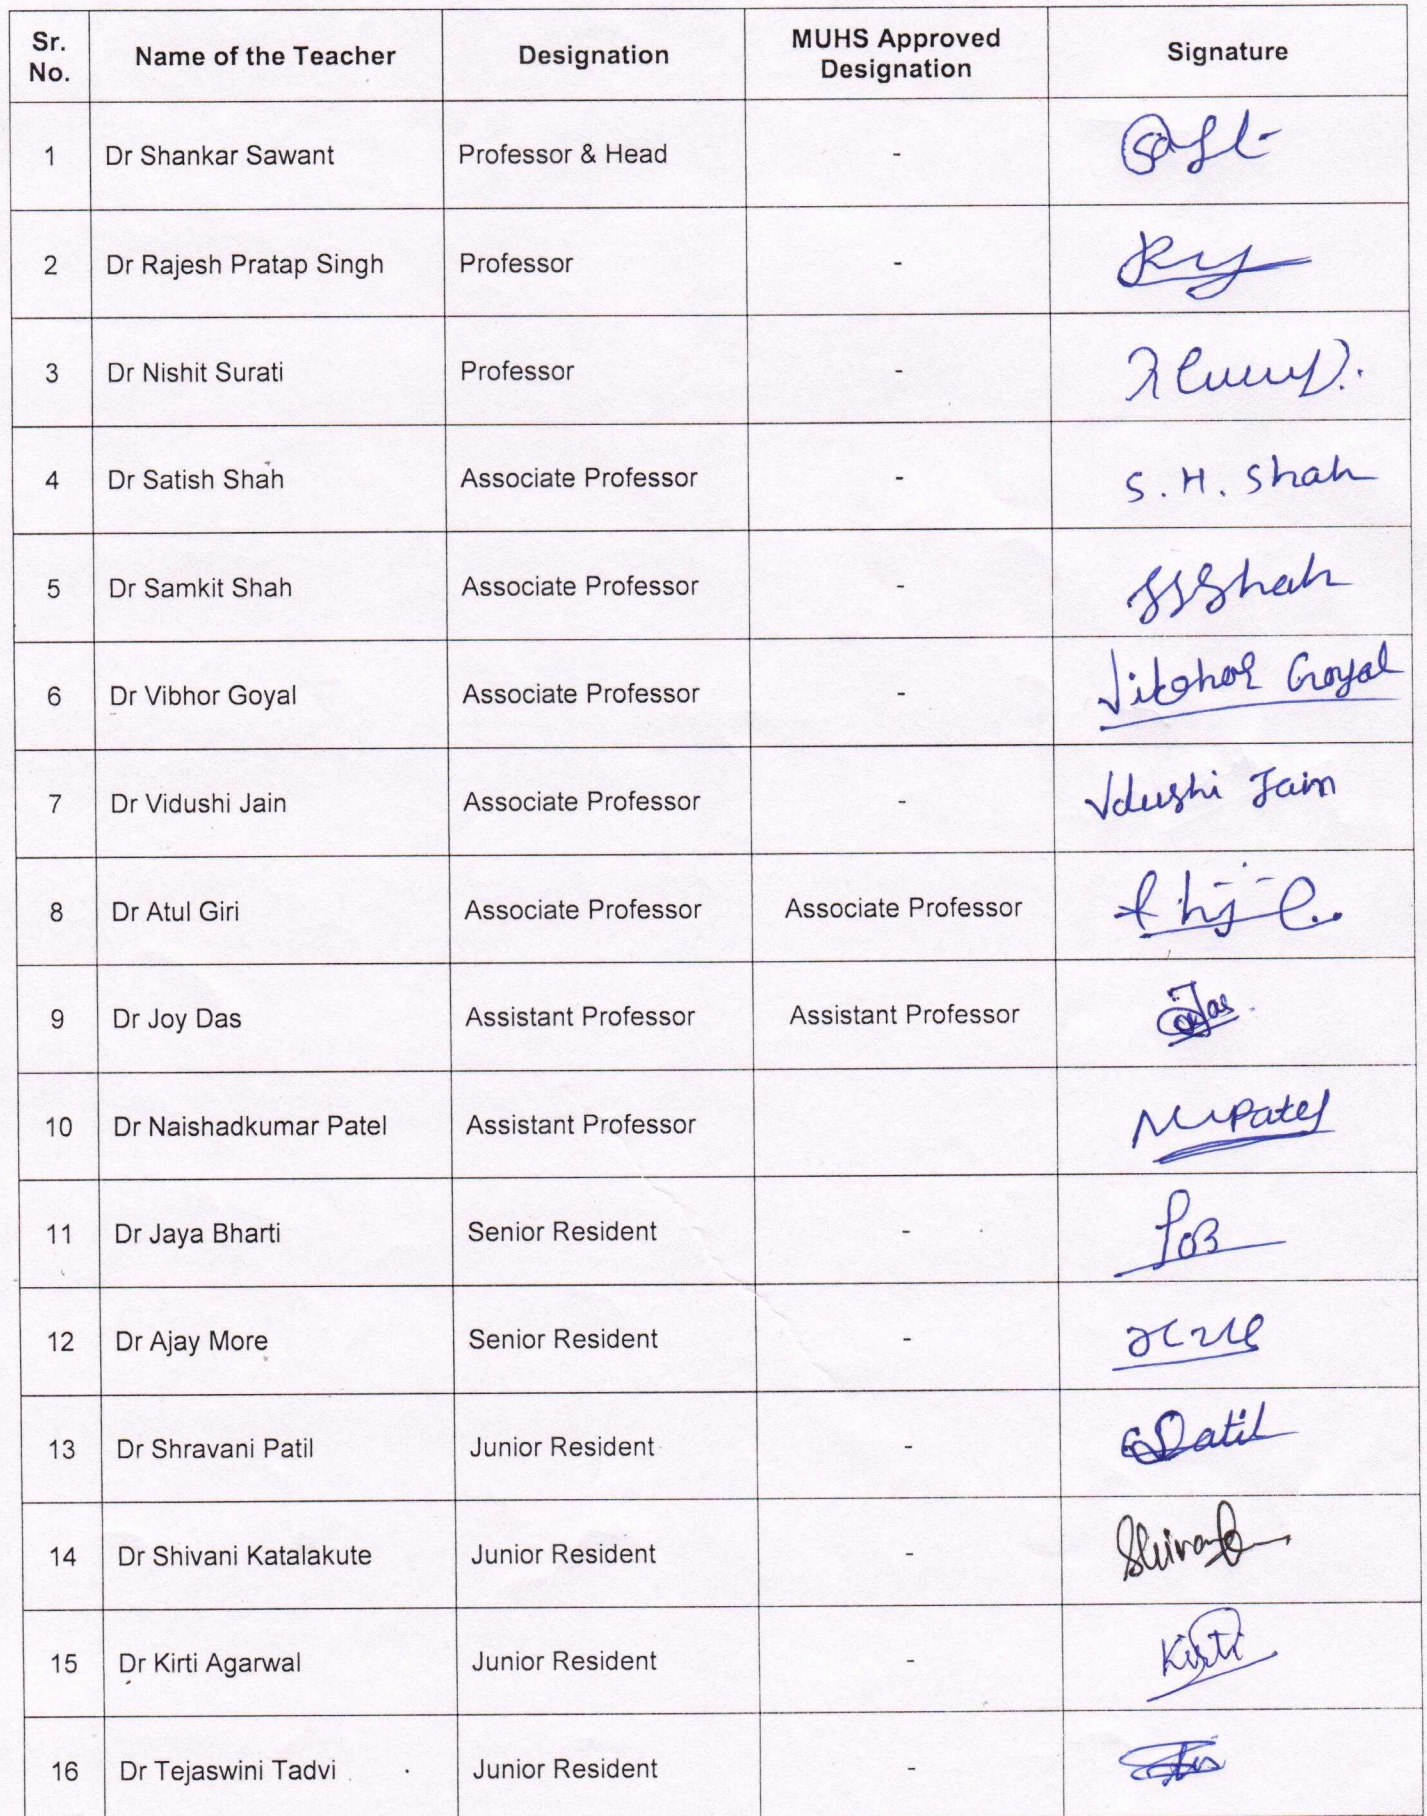 Sr. No. Name of the Teacher Designation MUHS Approved Designation Signature
1 Dr Shankar Sawant Professor & Head -
2 Dr Rajesh Pratap Singh Professor -
3 Dr Nishit Surati Professor -
4 Dr Satish Shah Associate Professor - S. H. Shah
5 Dr Samkit Shah Associate Professor - SSShah
6 Dr Vibhor Goyal Associate Professor - Vibhor Goyal
7 Dr Vidushi Jain Associate Professor - Vidushi Jain
8 Dr Atul Giri Associate Professor Associate Professor
9 Dr Joy Das Assistant Professor Assistant Professor
10 Dr Naishadkumar Patel Assistant Professor
11 Dr Jaya Bharti Senior Resident -
12 Dr Ajay More Senior Resident -
13 Dr Shravani Patil Junior Resident - SPatil
14 Dr Shivani Katalakute Junior Resident -
15 Dr Kirti Agarwal Junior Resident - Kirti
16 Dr Tejaswini Tadvi Junior Resident -